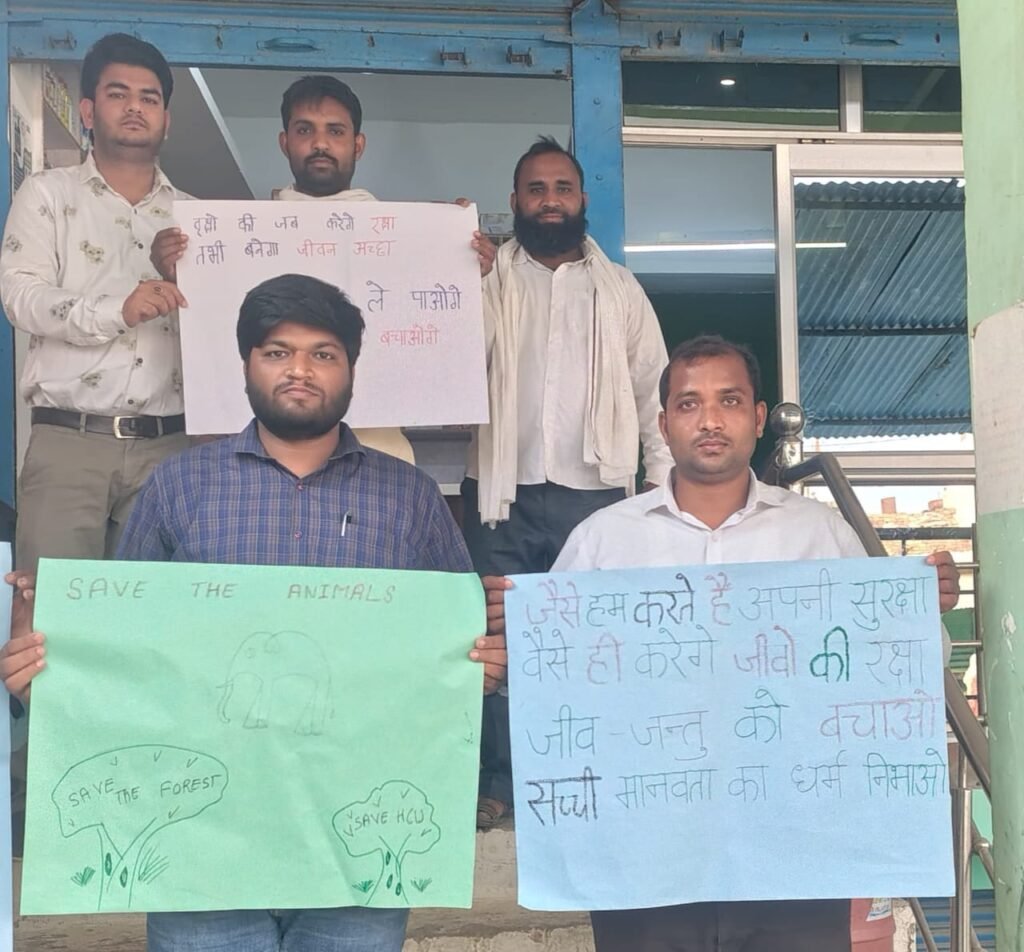 वृक्षो की जब करेगे रक्षा
तभी बनेगा जीवन अच्छा
ले पाओगे
बचाओगे
SAVE THE ANIMALS
SAVE THE FOREST
SAVE HCU
जैसे हम करते है अपनी सुरक्षा
वैसे ही करेगे जीवो की रक्षा
जीव-जन्तु को बचाओ
सच्ची मानवता का धर्म निभाओ